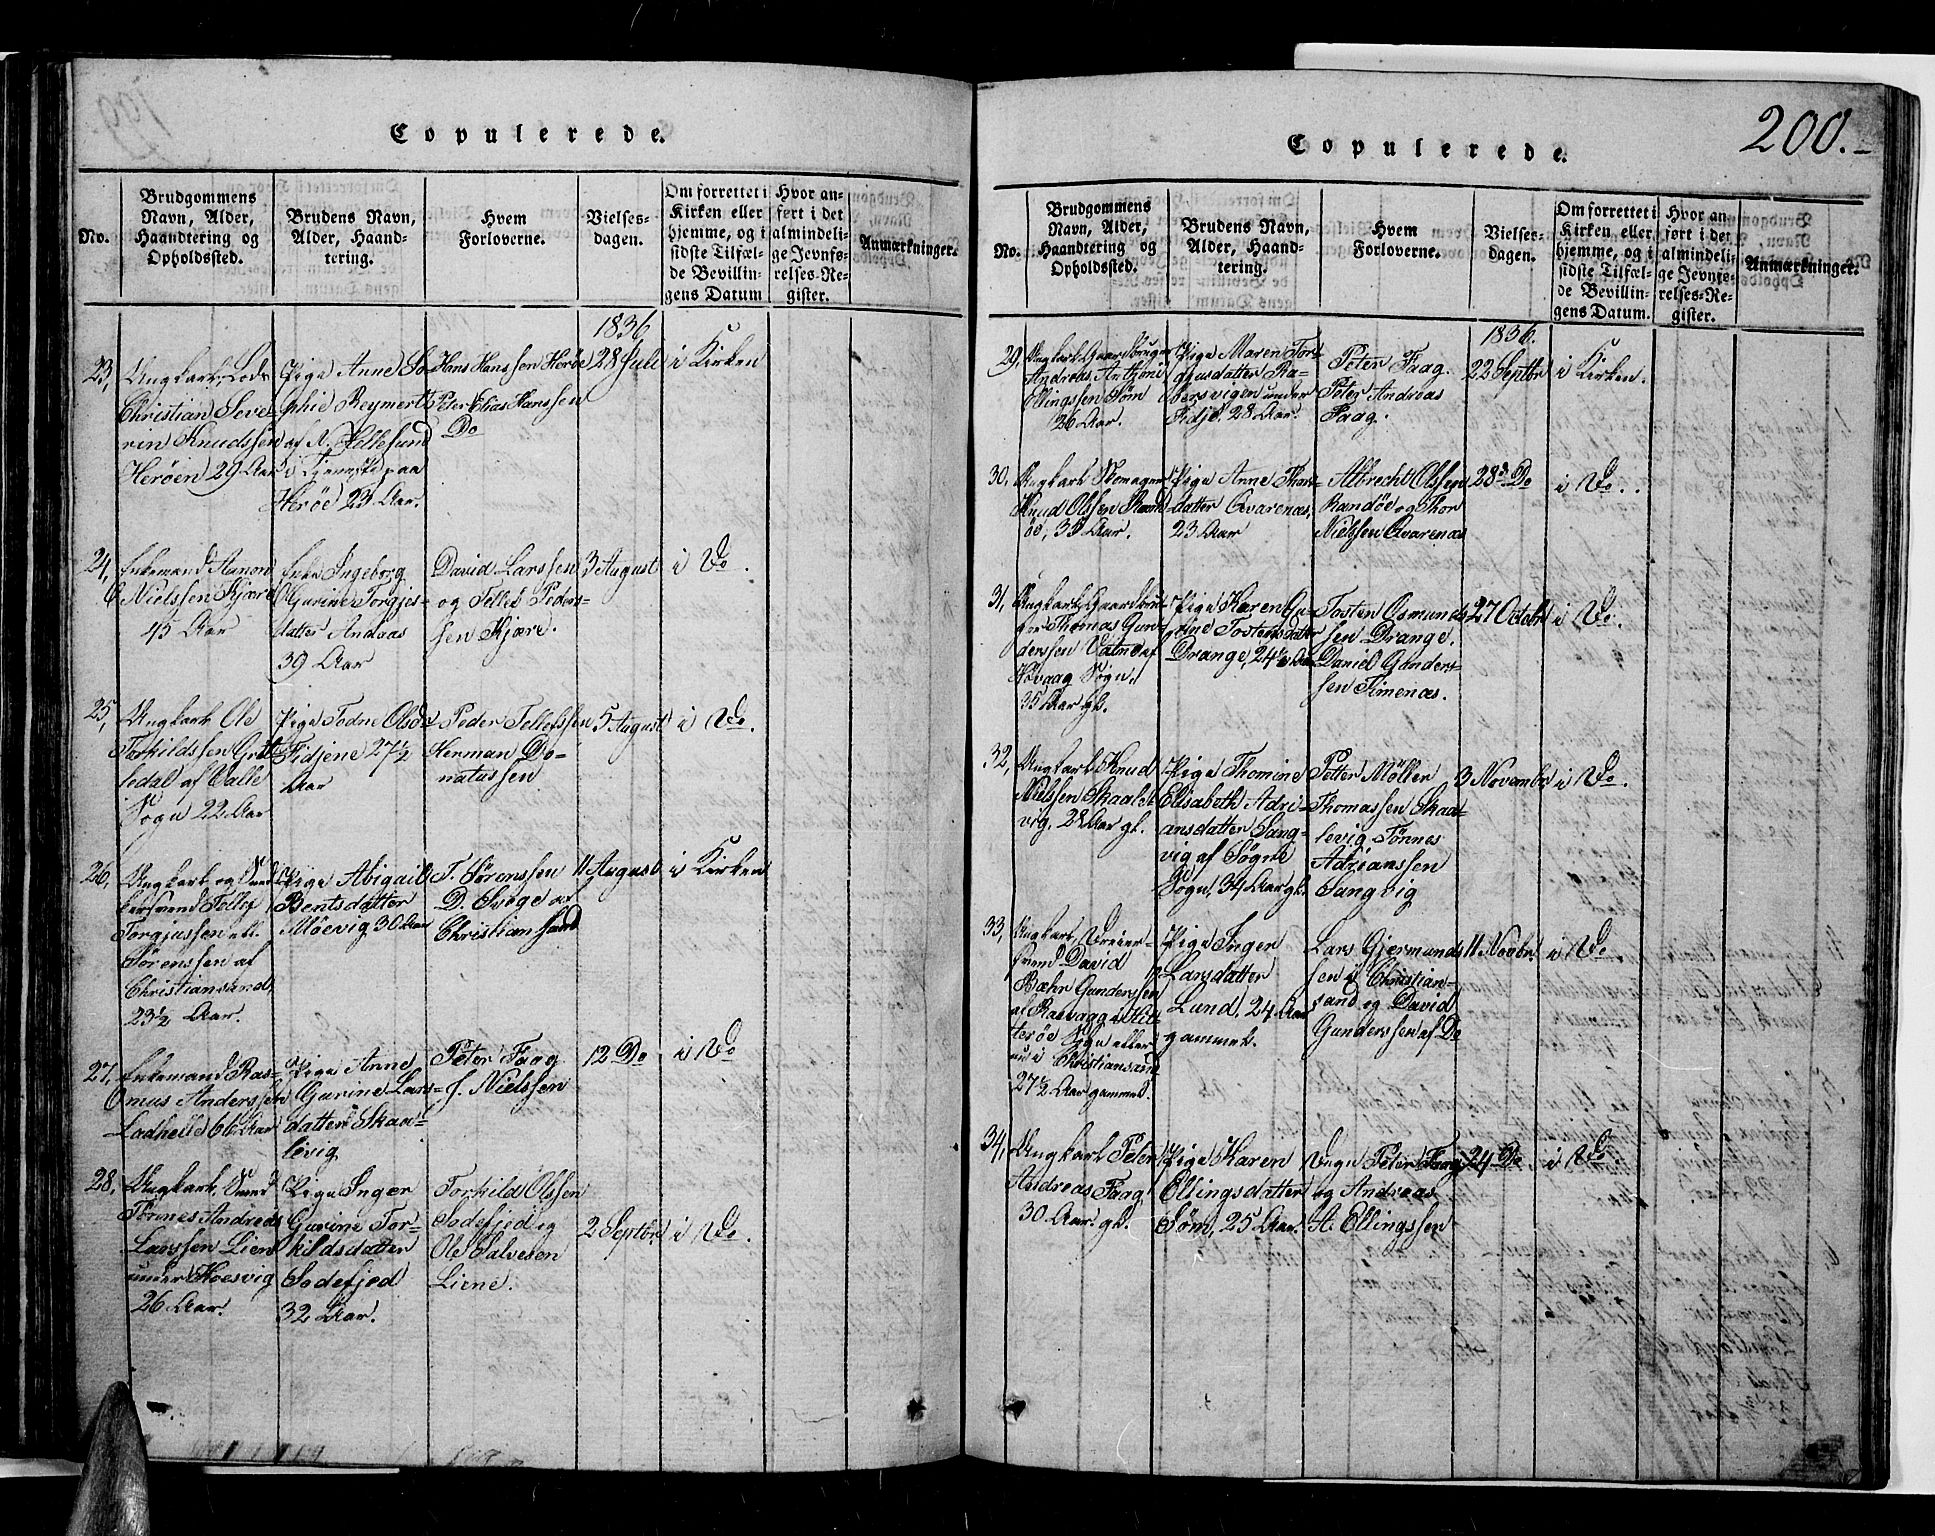 Copulerede.
No.
Brudgommens
Navn, Alder,
Haandtering og
Opholdssted.
Brudens Navn,
Alder, Haand-
tering.
Hvem
Forloverne.
Vielses-
dagen.
Om forrettet i
Kirken eller
hjemme, og i
sidste Tilfæl-
de Bevillin-
gens Datum
Hvor an-
ført i det
almindeli-
ge Jevnfø-
relses-Re-
gister.
Anmærkninger.
1836
23,
Ungkarl,
Christian Seve-
rin Knudssen
Herøen 29 Aar
Pige Anne So-
phie Reymert
af N. Hellesund
i Tjeneste paa
Herøe 23 Aar.
Hans Hanssen Herøe
Peter Elias Hanssen
Do
28 Juli
i Kirken
24,
Enkemand
Nielssen Kjære
45 Aar
Enke Ingeborg
Gurine Torgjes-
datter Andaas
39 Aar
David Larssen
og Tellef Peders-
sen Kjære.
3 August
i Do.
25,
Ungkarl Ole
Torkildssen
dal af Valle
Sogn 22 Aar
Pige Todne Olsdr
Fidjene 27½
Aar
Peder Tellefssen
Herman Do-
natussen
5 August
i Do.
26,
Ungkarl og
Tellef
Torgjussen
Sørenssen af
Christiansand,
23½ Aar.
Pige Abigail
Bentsdatter
Møevig 30 Aar
T. Sørenssen
D. Svege af
Christiansand
11 August
i Kirken
27,
Enkemand Ras-
mus Anderssen
Ladhelle 61 Aar
Pige Anne
Gurine Lars-
datter Skaa-
levig
Peter Faag
J. Nielssen
12 Do
i Do
28,
Ungkarl,
Tønnes Andreas
Larssen Lien
under Koesvig
26 Aar.
Pige Inger
Gurine Tor-
kildsdatter
Sodefjed
32 Aar.
Torkild Olssen
Sodefjed og
Ole Salvesen
Liene.
2 Septbr
i Do.
200.
Copulerede.
No.
Brudgommens
Navn, Alder,
Haandtering og
Opholdssted.
Brudens Navn,
Alder, Haand-
tering.
Hvem
Forloverne.
Vielses-
dagen.
Om forrettet i
Kirken eller
hjemme, og i
sidste Tilfæl-
de Bevillin-
gens Datum.
Hvor an-
ført i det
almindeli-
ge Jevnfø-
relses-Re-
gister.
Anmærkninger.
1836.
29,
Ungkarl Gaardbruger
Andreas Anthoni
Ellingssen Søm
26 Aar.
Pige Maren Tor-
gjusdatter Ra-
bersvigen under
Fidje. 28 Aar.
Peter Faag.
Peter Andreas
Faag.
22 Septbr
i Kirken.
30,
Ungkarl Skomager
Knud Olssen Rand-
øe, 33 Aar.
Pige Anne Thors-
datter Qvarenæs,
23 Aar
Albrecht Olssen
Randøe og Thor
Nielssen Qvarenæs
28 Do
i Do.
31,
Ungkarl, Gaardbru-
ger Thomas Gun-
derssen Vatne af
Høvaag Sogn,
35 Aar gl.
Pige Karen Gu-
rine Tostensdatter
Drange, 24½ Aar
Tosten Osmunds-
sen Drange.
Daniel Gunders-
sen Timenæs.
27 Octobr
i Do.
32,
Ungkarl Knud
Nielssen Skaale-
vig, 28 Aar gl.
Pige Thomine
Elisabeth Adri-
ansdatter Lang-
vig af Søgne
Sogn, 34 Aar gl.
Petter Møller
Thomassen Skaa-
levig, Tønnes
Adrianssen
Langvig
3 Novembr
i Do.
33,
Ungkarl, Dreier-
svend David
Bæhr Gunderssen
af Rasvaag i Hit-
terøe Sogn eller
nu i Christiansand
27½ Aar gammel.
Pige Inger
Larsdatter
Lund, 24 Aar
gammel.
Lars Gjermunds-
sen i Christian-
sand og David
Gunderssen af Do
11 Novbr
i Do.
34,
Ungkarl Peter
Andreas Faag
30 Aar. gl.
Pige Karen
Ellingsdatter
Søm, 25 Aar.
Peter Faag
og Andreas
A. Ellingssen
24 Do.
i Do.